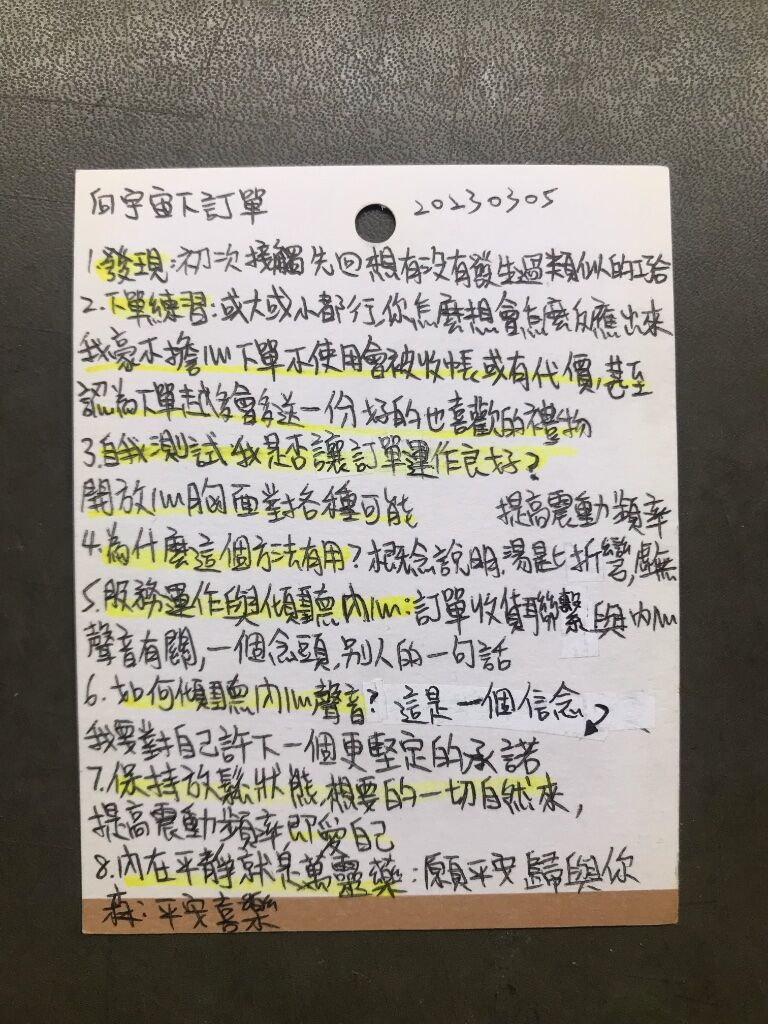 向宇宙下訂單 20230305
1.發現:初次接觸先回想有沒有發生過類似的經
2.下單練習:或大或小都行,你怎麼想會怎麼反應出來
我豪不擔心下單不使用會被收帳或有代價,甚至
認為下單越多會多送一份好的也喜歡的禮物
3.自我測試,我是否讓訂單運作良好?
開放心胸面對各種可能 提高震動頻率
4.為什麼這個方法有用?概念說明.湯匙折彎,
5.服務運作與傾聽內心:訂單收貨聯繫與內心
聲音有關,一個念頭,別人的一句話
6.如何傾聽內心聲音?這是一個信念
我要對自己許下一個更堅定的承諾
7.保持放鬆狀態,想要的一切自然來,
提高震動頻率即愛自己
8.內在平靜就是萬靈藥:願平安歸與你
森:平安喜樂